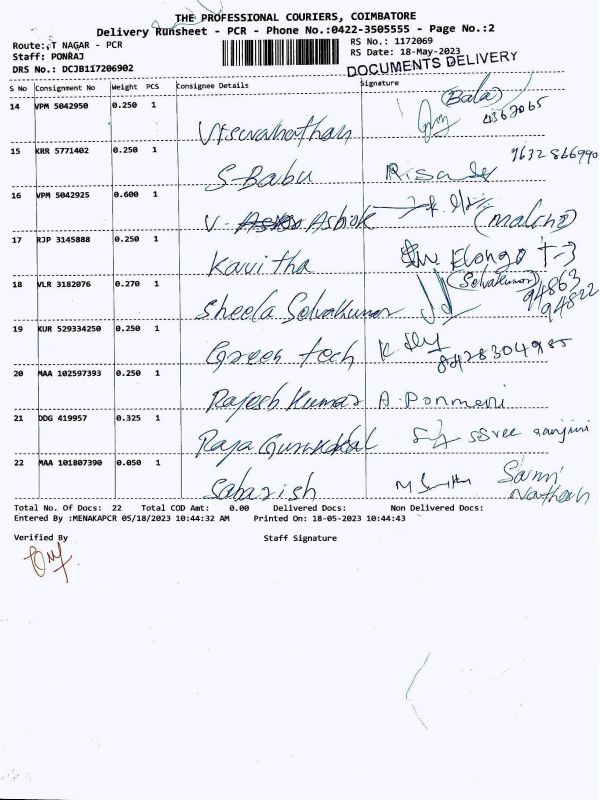 THE PROFESSIONAL COURIERS, COIMBATORE
Delivery Runsheet - PCR - Phone No.:0422-3505555 - Page No.:2
Route: T NAGAR - PCR
Staff: PONRAJ
DRS No.: DCJB117206902
RS No.: 1172069
RS Date: 18-May-2023
DOCUMENTS DELIVERY
S No Consignment No Weight PCS Consignee Details Signature
14 VPM 5042950 0.250 1 Viswanathan (Bala)
15 KRR 5771402 0.250 1 S-Babu
16 VPM 5042925 0.600 1 V. Ashok
17 RJP 3145888 0.250 1 Kavitha
18 VLR 3182076 0.270 1 Sheela Selvakumar (Selvakumar) 94863
94822
19 KUR 529334250 0.250 1 Green tech
20 MAA 102597393 0.250 1 Rajesh Kumar A. Ponmeni
21 DDG 419957 0.325 1 Raja
22 MAA 101807390 0.050 1 Sabarish
Total No. Of Docs: 22 Total COD Amt: 0.00 Delivered Docs: Non Delivered Docs:
Entered By :MENAKAPCR 05/18/2023 10:44:32 AM Printed On: 18-05-2023 10:44:43
Verified By Staff Signature